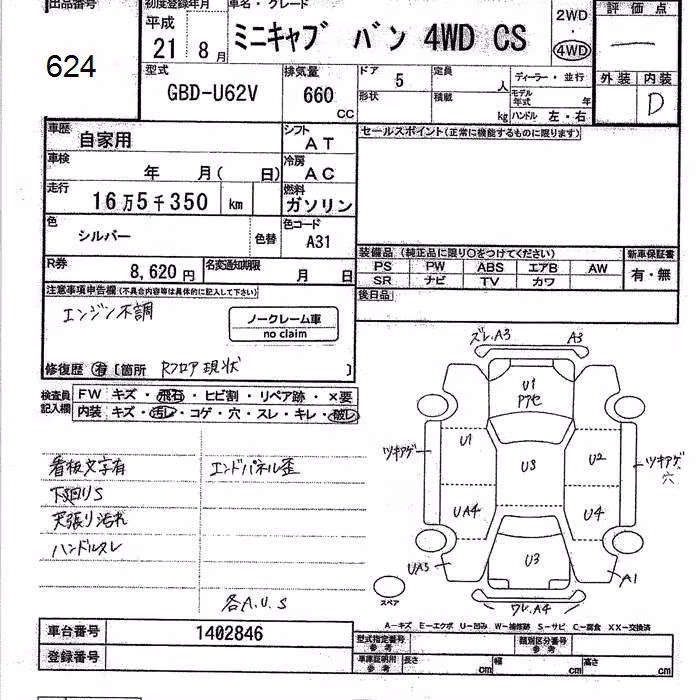 出品番号
624
初度登録年月
平成
21 8月
車名・グレード
ミニキャブ バン 4WD CS
2WD
・
4WD
評価点
外装 内装
D
型式
GBD-U62V
排気量
660
CC
ドア
5
形状
定員
人
積載
kg
ディーラー・並行
モデル年式 年
ハンドル 左・右
車歴
自家用
シフト
AT
車検
年 月( 日)
冷房
AC
走行
16万5千350 km
燃料
ガソリン
色
シルバー
色替
色コード
A31
R券
8,620円
名変通知期限
月 日
セールスポイント(正常に機能するものに限ります)
装備品 (純正品に限り○をつけてください)
PS PW ABS エアB AW
SR ナビ TV カワ
新車保証書
有・無
後日品
注意事項申告欄(不具合内容等は具体的に記入して下さい)
エンジン不調
ノークレーム車
no claim
修復歴 有 [箇所 Rフロア現状 ]
検査員記入欄
FW キズ・飛石・ヒビ割・リペア跡・×要
内装 キズ・汚レ・コゲ・穴・スレ・キレ・破レ
看板文字有
下廻りS
天張り汚れ
ハンドルスレ
エンドパネル歪
各A.U.S
ズレ.A3
A3
U1
Pアセ
ツキアゲ
U1
U3
U2
ツキアゲ
穴
UA4
U4
UA3
U3
A1
スペア
ワレ.A4
A−キズ E−エクボ U−凹み W−補修跡 S−サビ C−腐食 XX−交換済
車台番号
1402846
登録番号
型式指定番号
参考
類別区分番号
参考
車庫証明用
参考
長さ cm
幅 cm
高さ cm